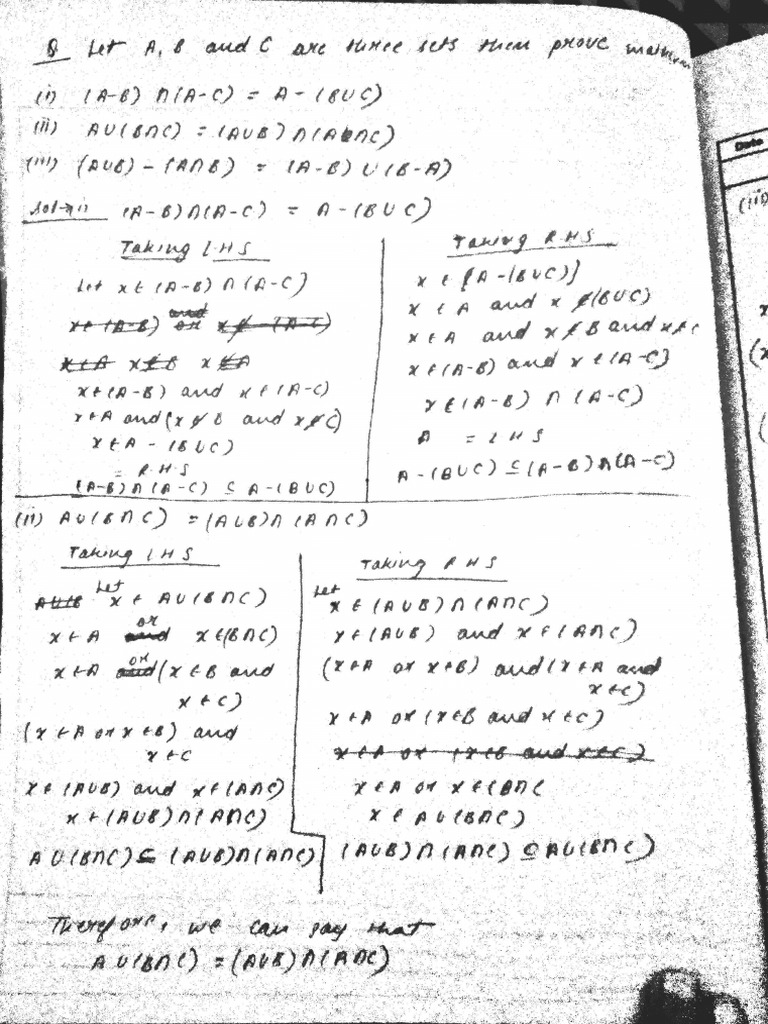 Q Let A, B and C are three sets then prove
(i) (A-B) ∩ (A-C) = A - (B∪C)
(ii) A∪(B∩C) = (A∪B)∩(A∩C)
(iii) (A∪B) - (A∩B) = (A-B) ∪ (B-A)
Sol→ i) (A-B)∩(A-C) = A-(B∪C)
Taking LHS
Let x∈(A-B) ∩ (A-C)
and
x∈(A-B) or x∉(A-C)
x∈A x∉B x∉A
x∈(A-B) and x∈(A-C)
x∈A and (x∉B and x∉C)
x∈A-(B∪C)
= R.H.S
(A-B)∩(A-C) ⊆ A-(B∪C)
Taking R.H.S
x∈[A-(B∪C)]
x∈A and x∉(B∪C)
x∈A and x∉B and x∉C
x∈(A-B) and x∈(A-C)
x∈(A-B) ∩ (A-C)
= LHS
A-(B∪C) ⊆ (A-B)∩(A-C)
(ii) A∪(B∩C) = (A∪B)∩(A∩C)
Taking LHS
A∪B Let x∈A∪(B∩C)
or
x∈A and x∈(B∩C)
or
x∈A and (x∈B and
x∈C)
(x∈A or x∈B) and
x∈C
x∈(A∪B) and x∈(A∩C)
x∈(A∪B)∩(A∩C)
A∪(B∩C) ⊆ (A∪B)∩(A∩C)
Taking RHS
Let x∈(A∪B)∩(A∩C)
x∈(A∪B) and x∈(A∩C)
(x∈A or x∈B) and (x∈A and
x∈C)
x∈A or (x∈B and x∈C)
x∈A or (x∈B and x∈C)
x∈A or x∈(B∩C
x∈A∪(B∩C)
(A∪B)∩(A∩C) ⊆ A∪(B∩C)
Therefore, we can say that
A∪(B∩C) = (A∪B)∩(A∩C)
Date
(iii)